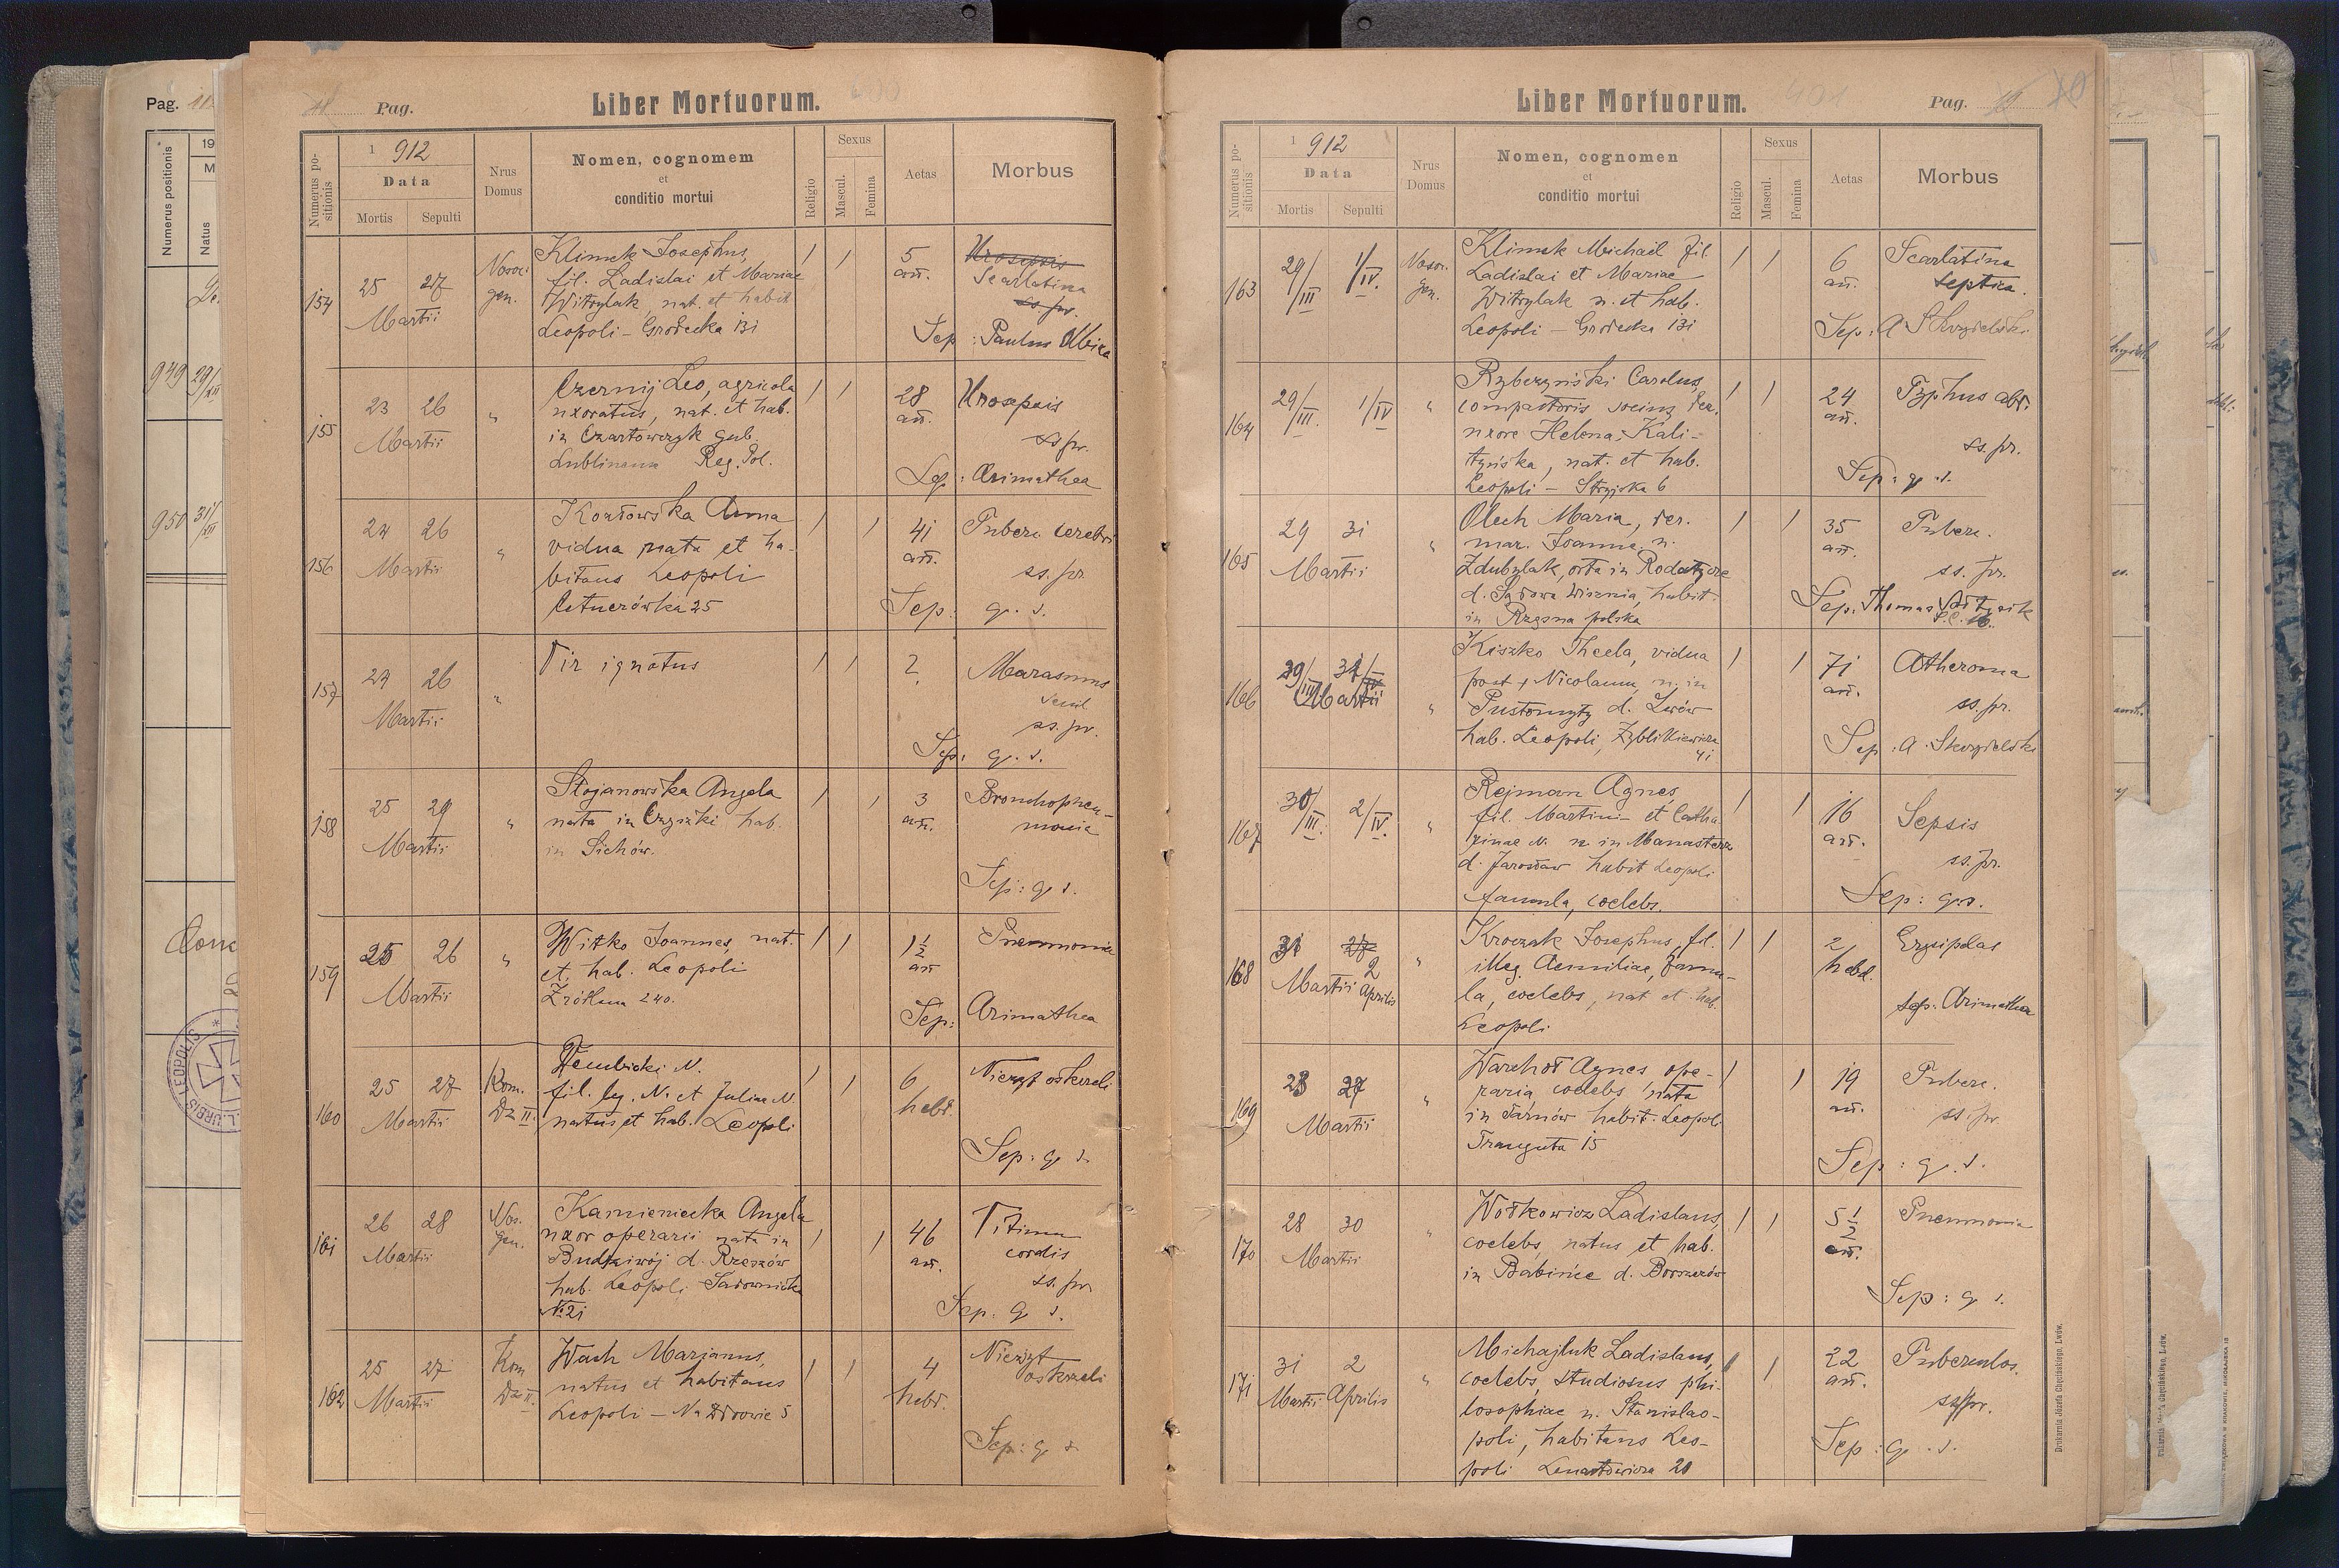 Pag.
Liber Mortuorum.
Numerus positionis
1 912
Data
Mortis Sepulti
Nrus Domus
Nomen, cognomem
et
conditio mortui
Religio
Sexus
Mascul. Femina
Aetas
Morbus
154
25 27
Martii
Nosoc.
gen.
Klimek Josephus,
fil. Ladislai et Mariae
Witrylak, nat. et habit
Leopoli – Grodecka 131
1 1
5
an.
Urosepsis
Scarlatina
ss. pr.
Sep: Paulus
155
23 26
Martii
"
Czernij Leo, agricola
uxoratus, nat. et hab.
in Czartowczyk gub.
Reg. Pol.
1 1
28
an.
Urosepsis
ss. pr.
Sep: Arimathea
156
24 26
Martii
"
Kozłowska Anna
vidua nata et ha-
bitans Leopoli
Cetnerówka 25
1 1
41
an.
Tuberc. cerebri
ss. pr.
Sep: g. s.
157
24 26
Martii
"
Vir ignotus
1 1
?
Marasmus
senil
ss. pr.
Sep: g. s.
158
25 29
Martii
"
Stojanowska Angela
nata in Czyszki hab.
in Sichów.
1 1
3
an.
Bronchopneu-
monia
Sep: g. s.
159
25 26
Martii
"
Witko Joannes, nat.
et hab. Leopoli
240.
1 1
1 1/2
an
Pneumonia
Sep: Arimathea
160
25 27
Martii
Kom.
Dz II.
Dembicki N.
fil. leg. N. et Julia N.
natus et hab. Leopoli
1 1
6
hebd.
Nieżyt oskrzeli
Sep: g. s.
161
26 28
Martii
Nos.
Gen.
Kamieniecka Angela
uxor operarii nata in
Budziwój d. Rzeszów
hab. Leopoli Sadownicka
№ 21
1 1
46
an.
Vitium
cordis
ss. pr.
Sep. g. s.
162
25 27
Martii
Kom
Dz II.
Wach Marjanus,
natus et habitans
Leopoli – Na Zdrowie 5
1 1
4
hebd.
Nieżyt
oskrzeli
Sep: g. s.
Liber Mortuorum.
Pag.
Numerus positionis
1 912
Data
Mortis Sepulti
Nrus Domus
Nomen, cognomen
et
conditio mortui
Religio
Sexus
Mascul. Femina
Aetas
Morbus
163
29/III 1/IV.
Nosoc.
gen.
Klimek Michael fil.
Ladislai et Mariae
Witrylak n. et hab.
Leopoli – Grodecka 131
1 1
6
an.
Scarlatina
septica.
Sep: A Skorzielski
164
29/III. 1/IV
"
Rybczyński Carolus,
compactoris socius, der.
uxore Helena Kali-
tyńska, nat. et hab.
Leopoli – Stryjska 6
1 1
24
an.
Typhus abd.
ss. pr.
Sep: g. s.
165
29 31
Martii
"
Olech Maria, der.
mar. Joanne n.
Zdubylak, orta in Rodatycze
d. Sądowa Wisznia, habit.
in Rzęsna polska
1 1
35
an.
Tuberc.
ss. pr.
Sep. Thomas
166
Martii
"
Kiszko Thecla, vidua
post + Nicolaum, n. in
Pustomyty d. Lwów
hab. Leopoli, Zyblikiewicza
41
1 1
71
an.
Atheroma
ss. pr.
Sep: A. Skorzielski
167
30/III. 2/IV.
"
Rejman Agnes,
fil. Martini et Catha
rinae N. n. in Manasterz
d. Jarosław habit Leopoli
famula, coelebs.
1 1
16
an.
Sepsis
ss. pr.
Sep: g. s.
168
31 27 2
Martii Aprilis
"
Kroczak Josephus, fil.
illeg. Aemiliae, famu-
la, coelebs, nat et hab.
Leopoli
1 1
2
hebd.
Erysipelas
Sep: Arimathea
169
23 27
Martii
"
Warchoł Agnes ope-
raria, coelebs, nata
in Tarnów habit. Leopoli
Trauguta 15
1 1
19
an.
Tuberc.
ss. pr
Sep: g. s.
170
28 30
Martii
"
Wołkowicz Ladislaus,
coelebs, natus et hab.
in Babińce d. Borszczów
1 1
5 1/2
an.
Pneumonia
Sep: g. s.
171
31 2
Martii Aprilis
"
Michajluk Ladislaus,
coelebs, studiosus phi-
losophiae n. Stanislao-
poli, habitans Leo-
poli Lenartowicza 20
1 1
22
an.
Tuberculos.
ss. pr.
Sep: g. s.
Drukarnia Józefa Chęcińskiego, Lwów.
Pag.
Numerus positionis
19
M
Natus
949 29/XII
950 31/XII